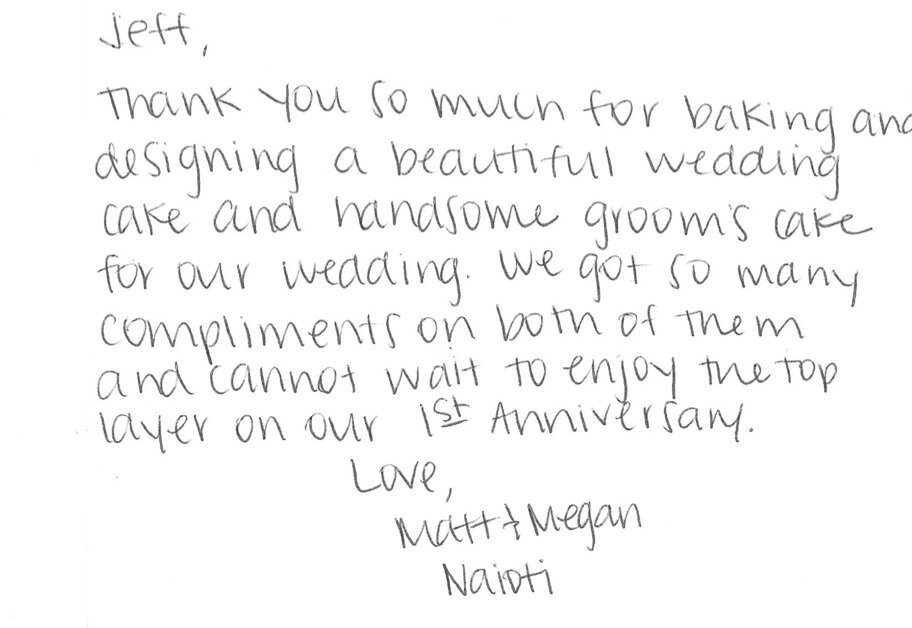 Jeff,
Thank you so much for baking and
designing a beautiful wedding
cake and handsome groom's cake
for our wedding. We got so many
compliments on both of them
and cannot wait to enjoy the top
layer on our 1st Anniversary.
Love,
Matt & Megan
Naioti